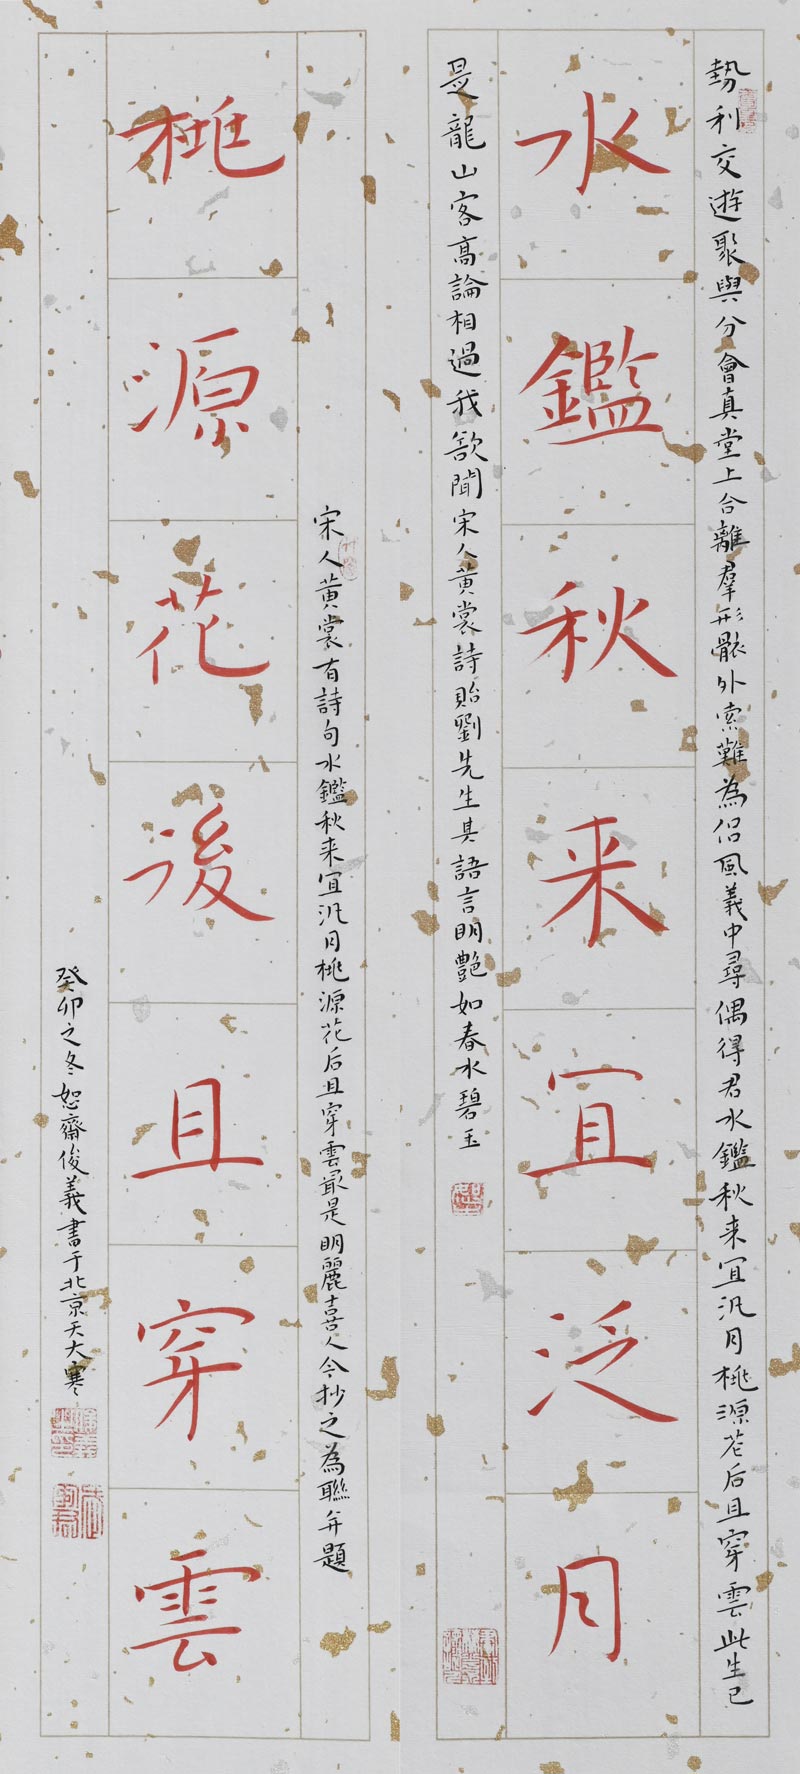 勢利交遊聚與分會真堂上合離群形骸外索難為侣風義中尋偶得君水鑑秋来宜汎月桃源花后且穿雲此生已
水鑑秋来宜泛月
是龍山客高論相過我欲聞宋人黄裳詩貽劉先生其語言明艷如春水碧玉
宋人黄裳有詩句水鑑秋来宜汎月桃源花后且穿雲最是明麗喜人今抄之為聯并題
桃源花後且穿雲
癸卯之冬恕齋俊義書于北京天大寒